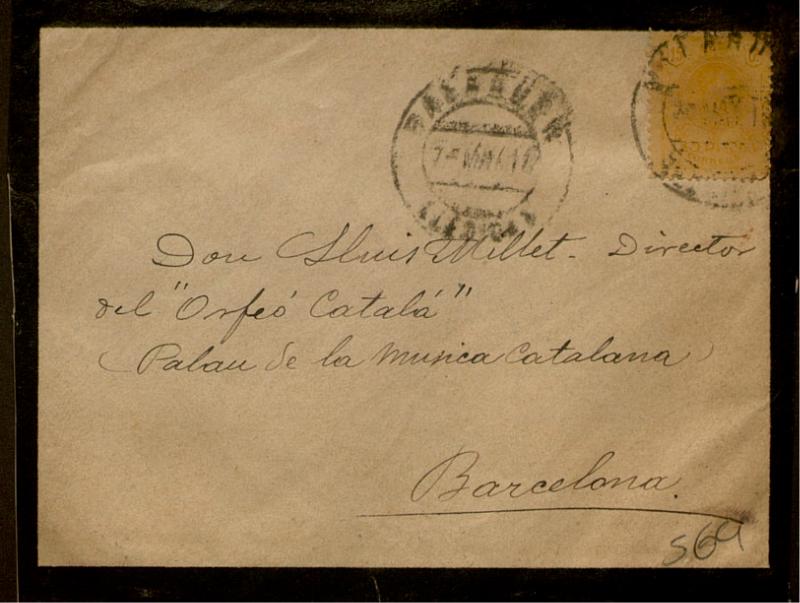 Don Lluis Millet. Director
del "Orfeó Catalá"
(Palau de la Musica Catalana)
Barcelona.
569